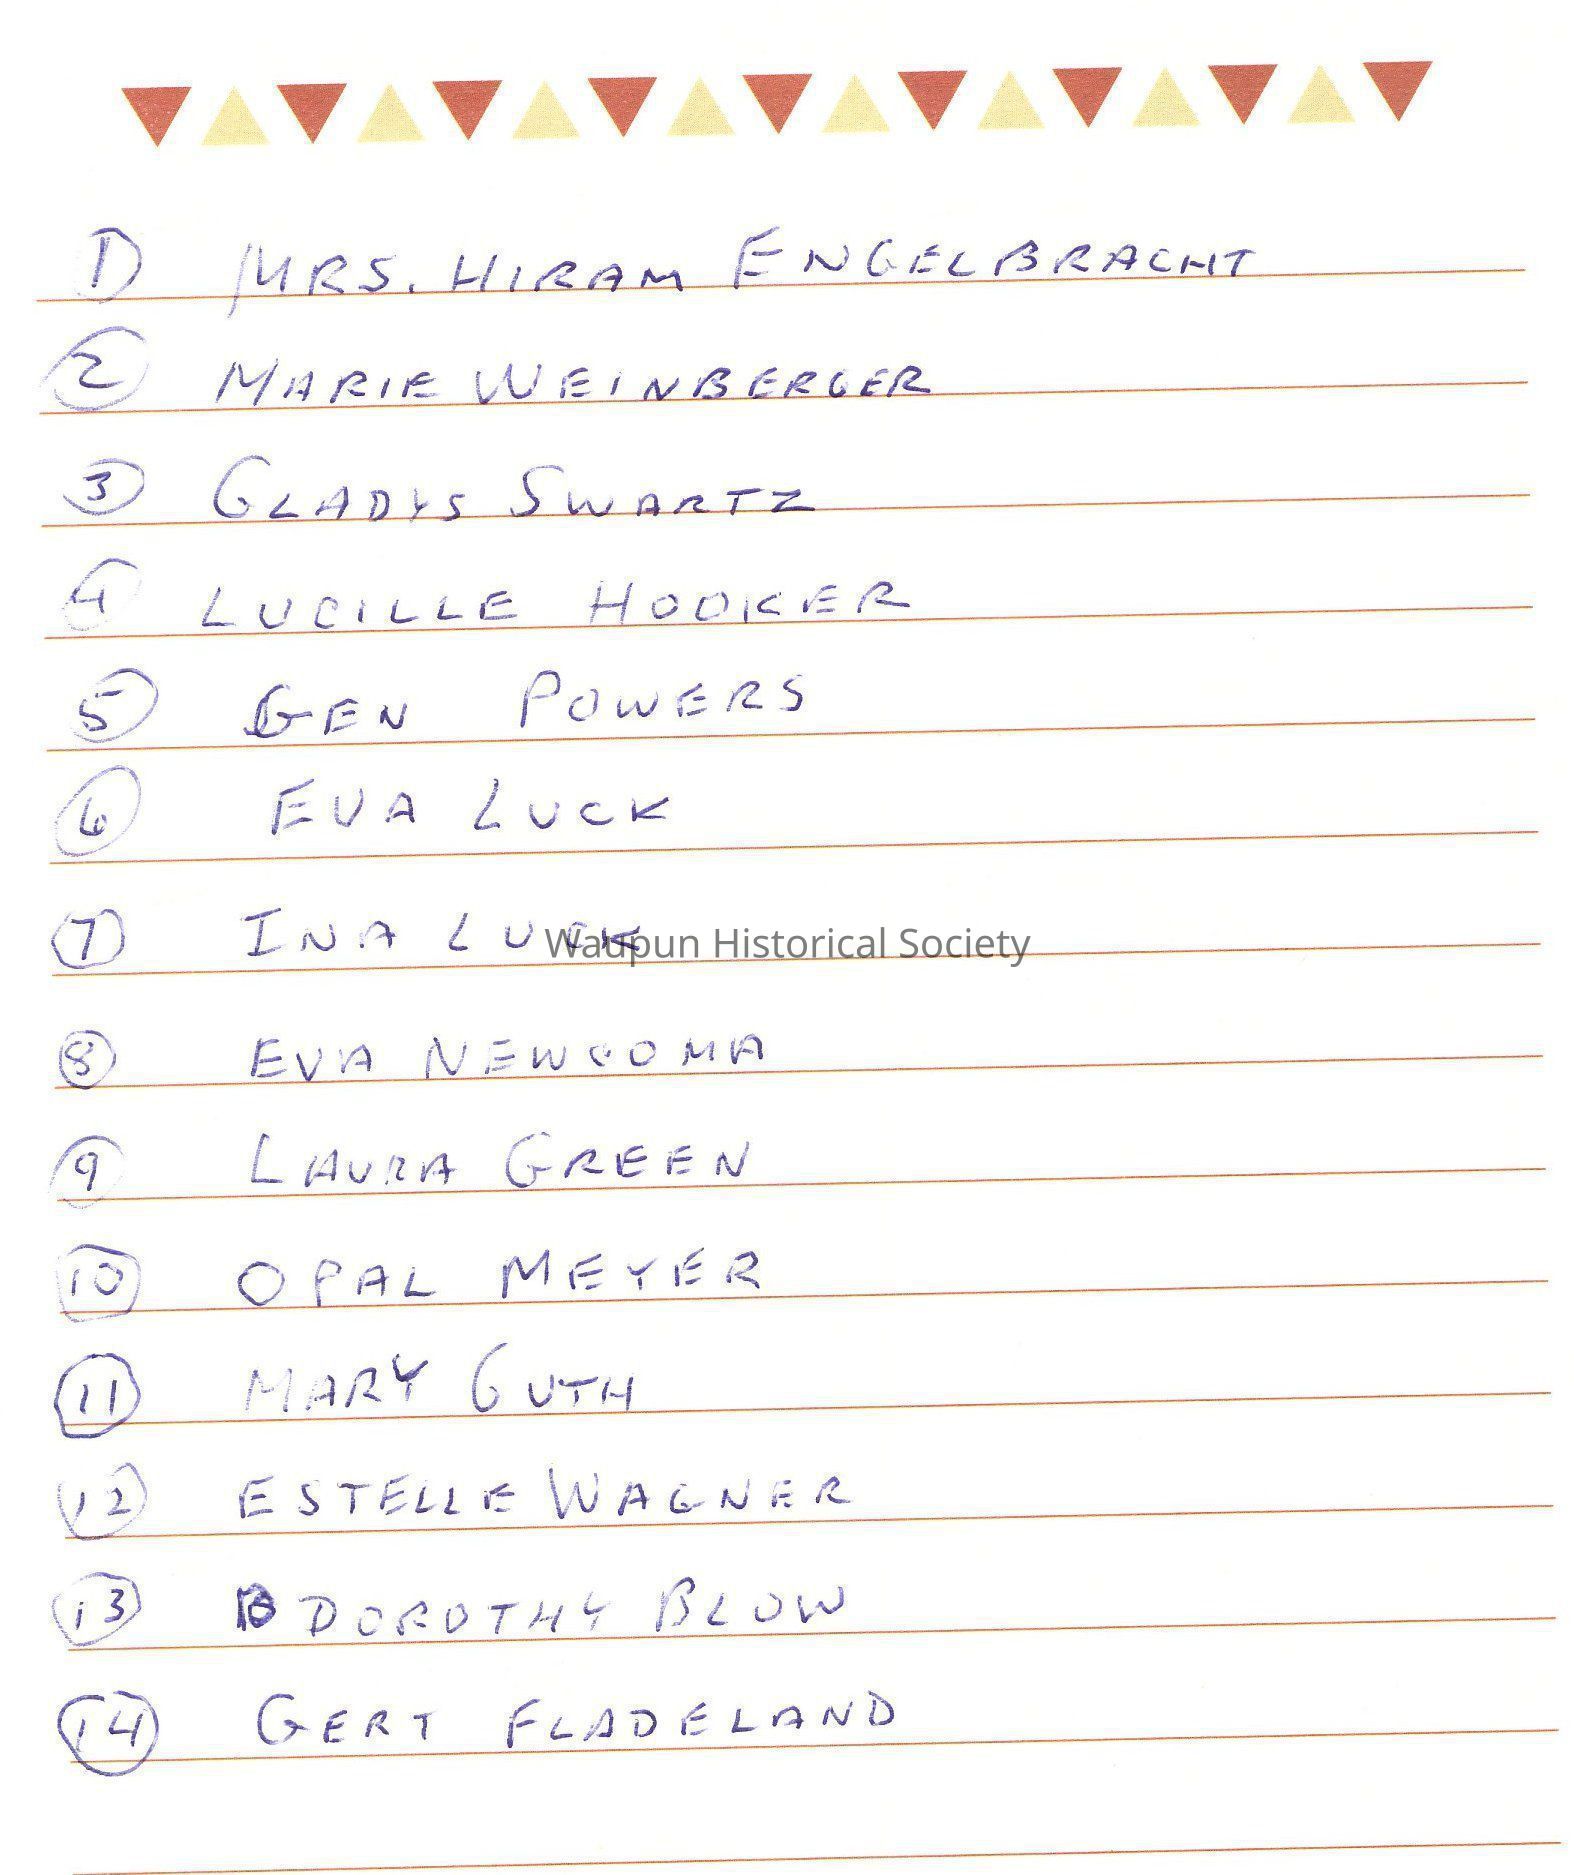 1 MRS. HIRAM ENGELBRACHT
2 MARIE WEINBERGER
3 GLADYS SWARTZ
4 LUCILLE HOOKER
5 GEN POWERS
6 EVA LUCK
7 INA LUCK
Waupun Historical Society
8 EVA NEWCOMA
9 LAURA GREEN
10 OPAL MEYER
11 MARY GUTH
12 ESTELLE WAGNER
13 DOROTHY BLOW
14 GERT FLADELAND